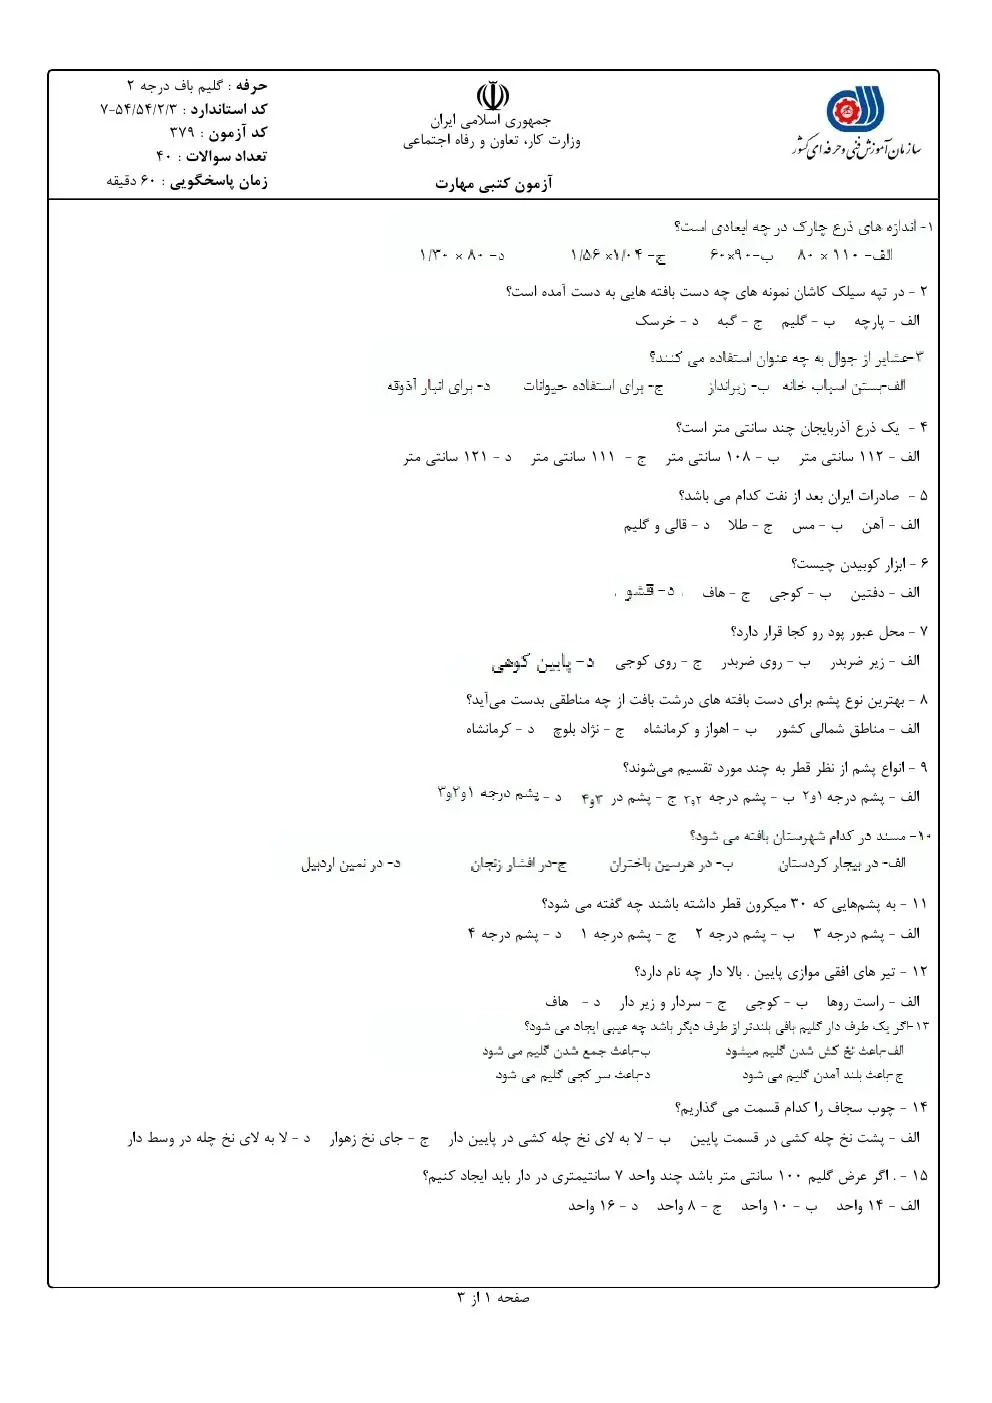 سازمان آموزش فنی و حرفه ای کشور
جمهوری اسلامی ایران
وزارت کار، تعاون و رفاه اجتماعی
آزمون کتبی مهارت
حرفه : گلیم باف درجه ۲
کد استاندارد : ۷-۵۴/۵۴/۲/۳
کد آزمون : ۳۷۹
تعداد سوالات : ۴۰
زمان پاسخگویی : ۶۰ دقیقه
۱- اندازه های ذرع چارک در چه ابعادی است؟
الف- ۱۱۰ × ۸۰ ب-۹۰×۶۰ ج- ۱/۰۴ ×۱/۵۶ د- ۸۰ × ۱/۳۰
۲ - در تپه سیلک کاشان نمونه های چه دست بافته هایی به دست آمده است؟
الف - پارچه ب - گلیم ج - گبه د - خرسک
۳-عشایر از جوال به چه عنوان استفاده می کنند؟
الف-بستن اسباب خانه ب- زیرانداز ج- برای استفاده حیوانات د- برای انبار آذوقه
۴ - یک ذرع آذربایجان چند سانتی متر است؟
الف - ۱۱۲ سانتی متر ب - ۱۰۸ سانتی متر ج - ۱۱۱ سانتی متر د - ۱۲۱ سانتی متر
۵ - صادرات ایران بعد از نفت کدام می باشد؟
الف - آهن ب - مس ج - طلا د - قالی و گلیم
۶ - ابزار کوبیدن چیست؟
الف - دفتین ب - کوجی ج - هاف د- قشو
۷ - محل عبور پود رو کجا قرار دارد؟
الف - زیر ضربدر ب - روی ضربدر ج - روی کوجی د- پایین کوهی
۸ - بهترین نوع پشم برای دست بافته های درشت بافت از چه مناطقی بدست می‌آید؟
الف - مناطق شمالی کشور ب - اهواز و کرمانشاه ج - نژاد بلوچ د - کرمانشاه
۹ - انواع پشم از نظر قطر به چند مورد تقسیم می‌شوند؟
الف - پشم درجه ۱و۲ ب - پشم درجه ۲و۳ ج - پشم در ۳و۴ د - پشم درجه ۱و۲و۳
۱۰- مسند در کدام شهرستان بافته می شود؟
الف- در بیجار کردستان ب- در هرسین باختران ج-در افشار زنجان د- در نمین اردبیل
۱۱ - به پشم‌هایی که ۳۰ میکرون قطر داشته باشند چه گفته می شود؟
الف - پشم درجه ۳ ب - پشم درجه ۲ ج - پشم درجه ۱ د - پشم درجه ۴
۱۲ - تیر های افقی موازی پایین . بالا دار چه نام دارد؟
الف - راست روها ب - کوجی ج - سردار و زیر دار د - هاف
۱۳-اگر یک طرف دار گلیم بافی بلندتر از طرف دیگر باشد چه عیبی ایجاد می شود؟
الف-باعث نخ کش شدن گلیم میشود ب-باعث جمع شدن گلیم می شود
ج-باعث بلند آمدن گلیم می شود د-باعث سر کجی گلیم می شود
۱۴ - چوب سجاف را کدام قسمت می گذاریم؟
الف - پشت نخ چله کشی در قسمت پایین ب - لا به لای نخ چله کشی در پایین دار ج - جای نخ زهوار د - لا به لای نخ چله در وسط دار
۱۵ - . اگر عرض گلیم ۱۰۰ سانتی متر باشد چند واحد ۷ سانتیمتری در دار باید ایجاد کنیم؟
الف - ۱۴ واحد ب - ۱۰ واحد ج - ۸ واحد د - ۱۶ واحد
صفحه ۱ از ۳